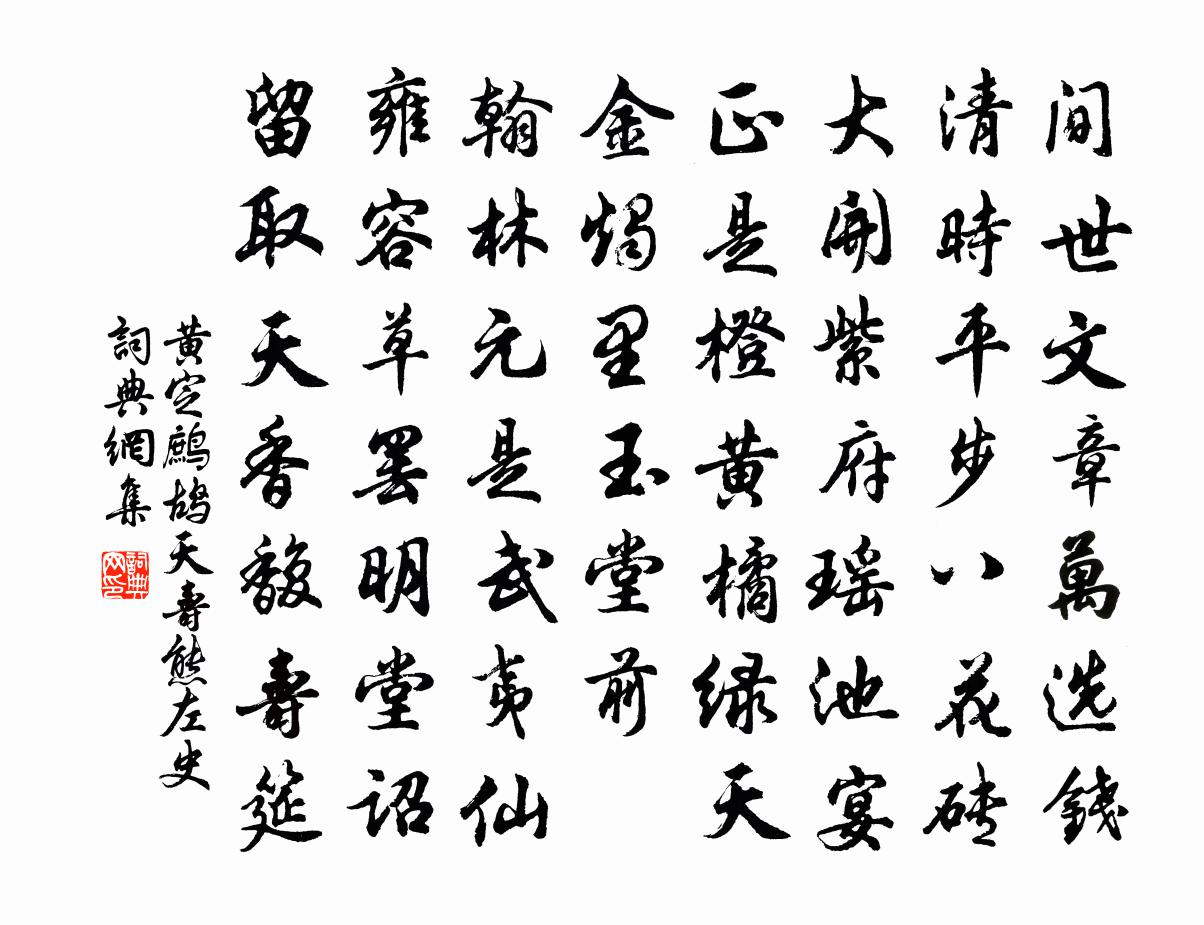 間世文章萬选錢
清時平步八花磚
大開紫府瑶池宴
正是橙黄橘緑天
金燭里玉堂前
翰林元是武夷仙
雍容草罢明堂詔
留取天香馥壽筵
黄定鷓鴣天壽熊左史
詞典網集
詞典网印